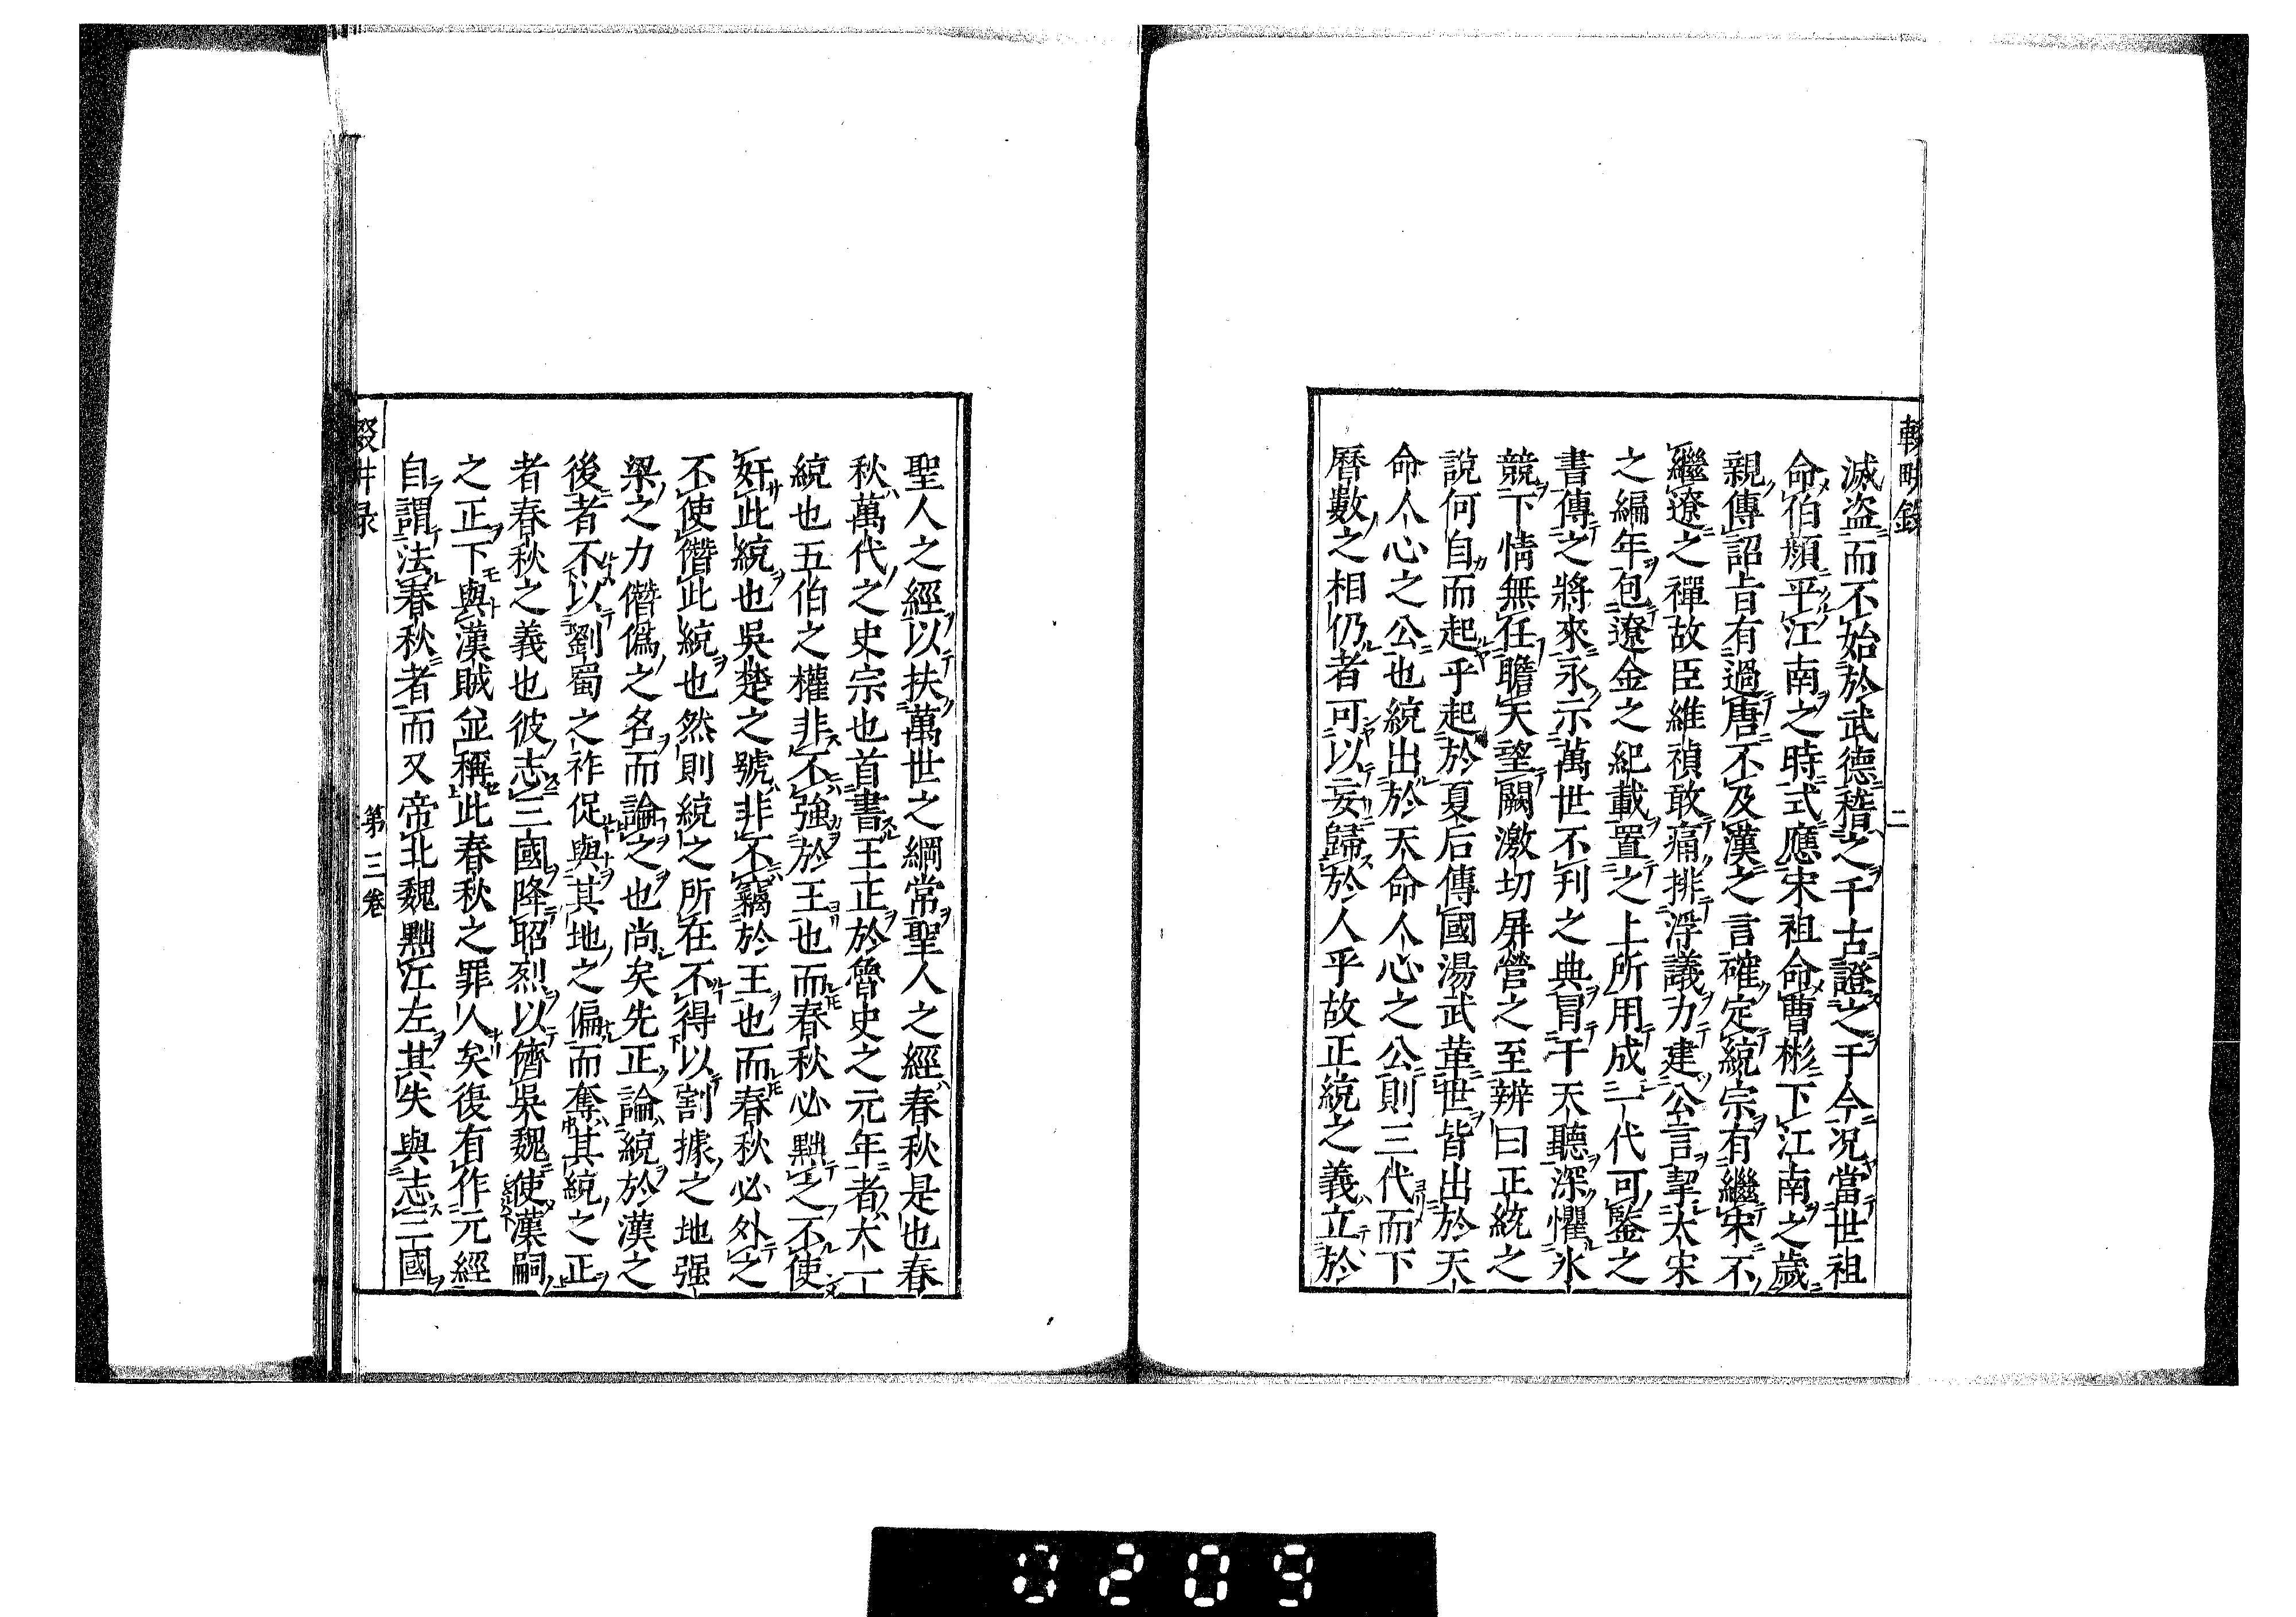 輟畊錄
二
滅盗而不始於武德稽之千古證之于今況當世祖
命伯顏平江南之時式應宋祖命曹彬下江南之歲
親傳詔旨有過唐不及漢之言確定統宗有繼宋不
繼遼之禪故臣維禎敢痛排浮議力建公言挈大宋
之編年包遼金之紀載置之上所用成一代可鑒之
書傳之將來永示萬世不刊之典冒干天聽深懼氷
競下情無任瞻天望闕激切屏營之至辨曰正統之
說何自而起乎起於夏后傳國湯武革世皆出於天
命人心之公也統出於天命人心之公則三代而下
曆數之相仍者可以妄歸於人乎故正統之義立於
聖人之經以扶萬世之綱常聖人之經春秋是也春
秋萬代之史宗也首書王正於魯史之元年者大一
統也五伯之權非不強於王也而春秋必黜之不使
奸此統也吳楚之號非不竊於王也而春秋必外之
不使僭此統也然則統之所在不得以割據之地强
梁之力僭僞之名而論之也尚矣先正論統於漢之
後者不以劉蜀之祚促與其地之偏而奪其統之正
者春秋之義也彼志三國降昭烈以儕吳魏使漢嗣
之正下與漢賊並稱此春秋之罪人矣復有作元經
自謂法春秋者而又帝北魏黜江左其失與志三國
第三卷
0209